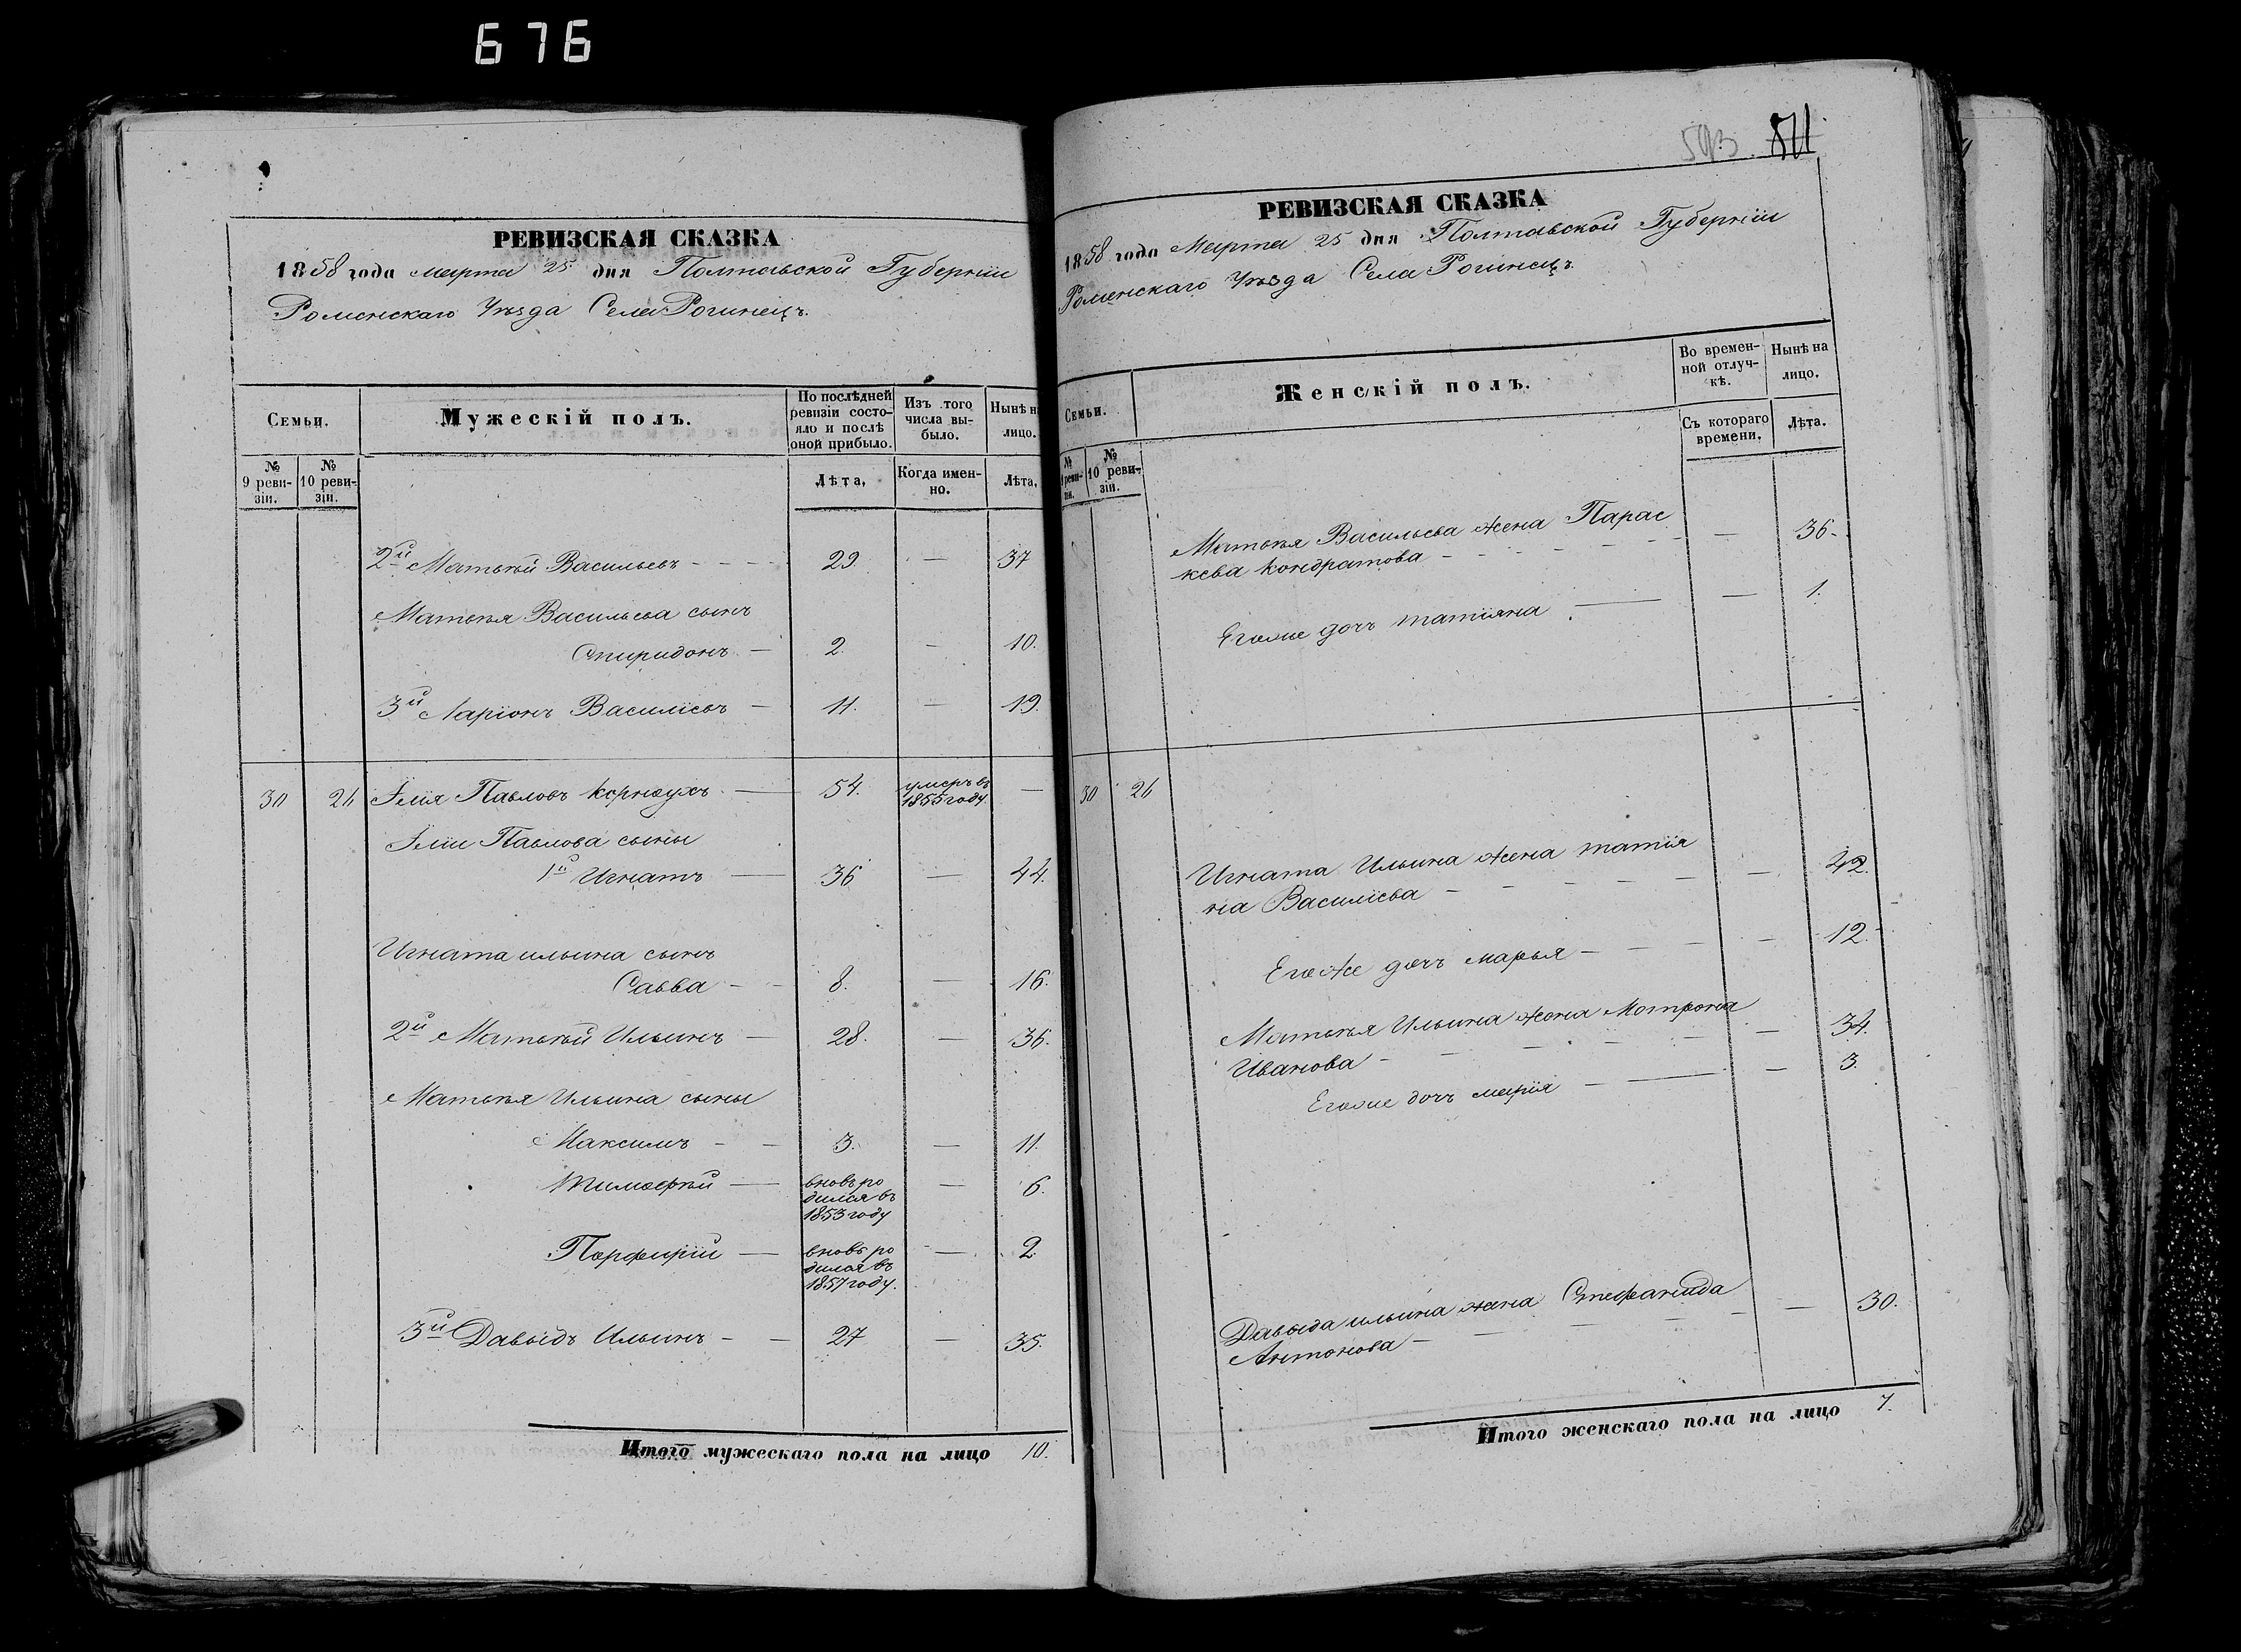 676
РЕВИЗСКАЯ СКАЗКА
1858 года марта 25 дня Полтавской Губерніи
Роменскаго Уѣзда Села Рогинецъ.
Семьи.
Мужескій полъ.
По послѣдней ревизіи состояло и послѣ оной прибыло.
Изъ того числа выбыло.
Нынѣ на лицо.
№ 9 ревизіи.
№ 10 ревизіи.
Лѣта,
Когда именно.
Лѣта,
2й Матвѣй Васильевъ - - - 29. — 37
Матвѣя Васильева сынъ
Спиридонъ — 2. — 10.
3й Ларіонъ Василіевъ — 11. — 19.
30 26 Илія Павловъ Корноухъ — 54. умеръ въ 1855 году. —
Иліи Павлова сыны
1й Игнатъ — 36 — 44.
Игната ильина сынъ
Савва - - 8. — 16.
2й Матвѣй Ильинъ — 28. — 36.
Матвѣя Ильина сыны
Максимъ - — 3. — 11.
Тимофѣй — вновь родился въ 1853 году — 6.
Порфирій — вновь родился въ 1857 году. — 2
3й Давыдъ Ильинъ - — 27 — 35.
Итого мужескаго пола на лицо 10.
593. 811
РЕВИЗСКАЯ СКАЗКА
1858 года Марта 25 дня Полтавской Губерніи
Роменскаго Уѣзда Села Рогинецъ.
Семьи.
Женскій полъ.
Во временной отлучкѣ.
Нынѣ на лицо.
№ 9 ревизіи.
№ 10 ревизіи.
Съ котораго времени.
Лѣта.
Матвѣя Васильева жена Парас
кева Кондратова - — 36.
Егоже дочь татіяна — — 1.
30 26
Игната Ильина жена татія
на Василіева - — 42.
Егоже дочь марья - — 12.
Матвѣя Ильина жена Мотрона
Иванова - — 34.
Егоже дочь марія — — 3.
Давыда ильина жена Стефанида
Антонова - — 30.
Итого женскаго пола на лицо 7.